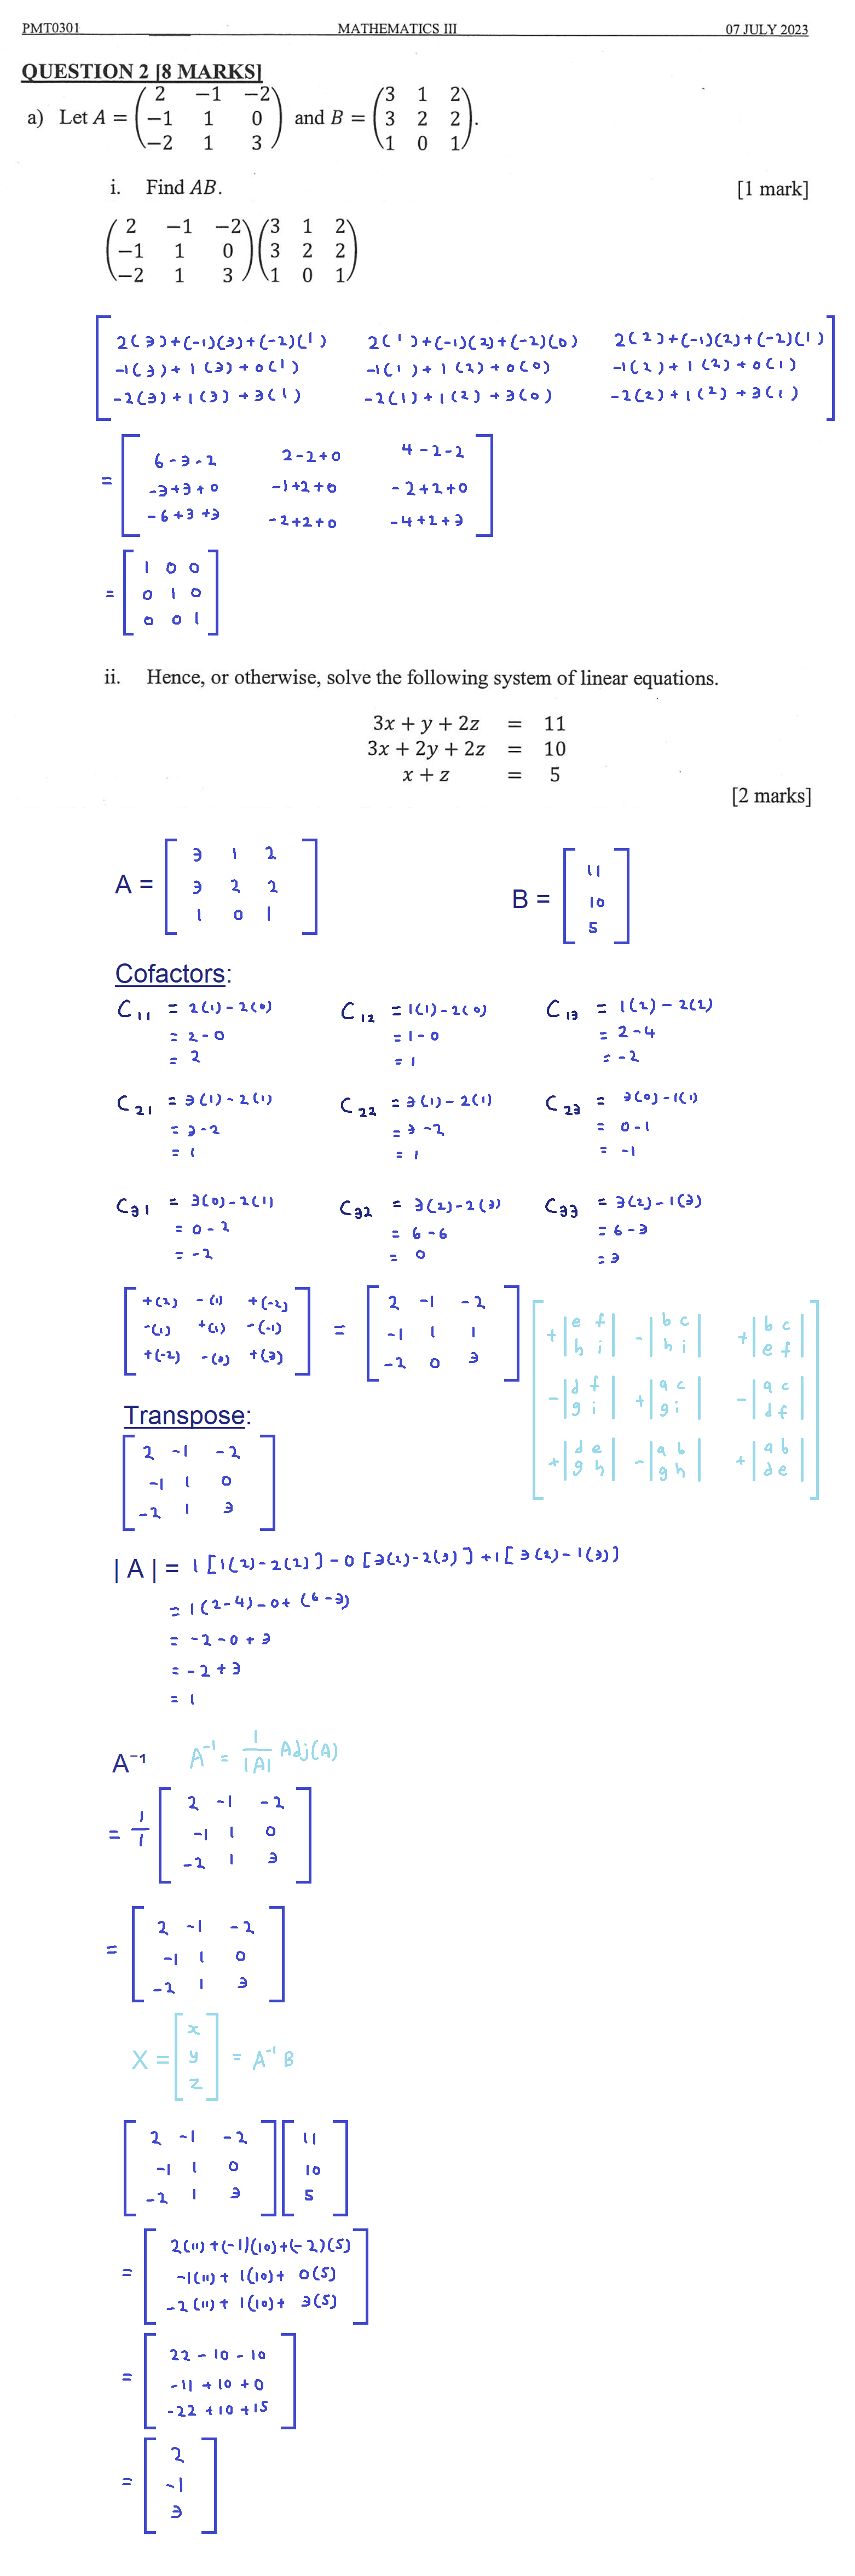 PMT0301 MATHEMATICS III 07 JULY 2023
QUESTION 2 [8 MARKS]
a) Let A = ( 2 −1 −2 ; −1 1 0 ; −2 1 3 ) and B = ( 3 1 2 ; 3 2 2 ; 1 0 1 ).
i. Find AB. [1 mark]
( 2 −1 −2 ; −1 1 0 ; −2 1 3 ) ( 3 1 2 ; 3 2 2 ; 1 0 1 )
2(3)+(-1)(3)+(-2)(1) 2(1)+(-1)(2)+(-2)(0) 2(2)+(-1)(2)+(-2)(1)
-1(3)+1(3)+0(1) -1(1)+1(2)+0(0) -1(2)+1(2)+0(1)
-2(3)+1(3)+3(1) -2(1)+1(2)+3(0) -2(2)+1(2)+3(1)
6-3-2 2-2+0 4-2-2
= -3+3+0 -1+2+0 -2+2+0
-6+3+3 -2+2+0 -4+2+3
1 0 0
= 0 1 0
0 0 1
ii. Hence, or otherwise, solve the following system of linear equations.
3x + y + 2z = 11
3x + 2y + 2z = 10
x + z = 5
[2 marks]
3 1 2 11
A = 3 2 2 B = 10
1 0 1 5
Cofactors:
C11 = 2(1)-2(0) C12 = 1(1)-2(0) C13 = 1(2)-2(2)
= 2-0 = 1-0 = 2-4
= 2 = 1 = -2
C21 = 3(1)-2(1) C22 = 3(1)-2(1) C23 = 3(0)-1(1)
= 3-2 = 3-2 = 0-1
= 1 = 1 = -1
C31 = 3(0)-2(1) C32 = 3(2)-2(3) C33 = 3(2)-1(3)
= 0-2 = 6-6 = 6-3
= -2 = 0 = 3
+(2) -(1) +(-2) 2 -1 -2 +|e f ; h i| -|b c ; h i| +|b c ; e f|
-(1) +(1) -(-1) = -1 1 1 -|d f ; g i| +|a c ; g i| -|a c ; d f|
+(-2) -(0) +(3) -2 0 3 +|d e ; g h| -|a b ; g h| +|a b ; d e|
Transpose:
2 -1 -2
-1 1 0
-2 1 3
|A| = 1[1(2)-2(2)]-0[3(2)-2(3)]+1[3(2)-1(3)]
= 1(2-4)-0+(6-3)
= -2-0+3
= -2+3
= 1
A⁻¹ A⁻¹ = 1/|A| Adj(A)
2 -1 -2
= 1/1 -1 1 0
-2 1 3
2 -1 -2
= -1 1 0
-2 1 3
x
X = y = A⁻¹ B
z
2 -1 -2 11
-1 1 0 10
-2 1 3 5
2(11)+(-1)(10)+(-2)(5)
= -1(11)+1(10)+0(5)
-2(11)+1(10)+3(5)
22-10-10
= -11+10+0
-22+10+15
2
= -1
3